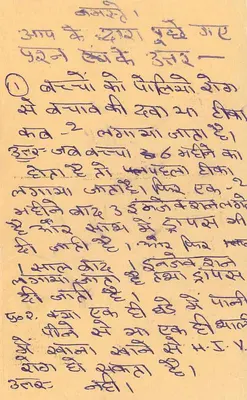 नमस्ते।
आप के द्वारा पूछे गए
प्रश्न के उत्तर —
① बच्चों को पोलियो रोग
से बचाव की दवा या टीका
कब-२ लगाया जाता है।
उत्तर- जब बच्चा 6 महीने का
होता है तो पहला टीका
लगाया जाता है। फिर एक-२
महीने बाद 3 इंजेक्शन लगते
हैं और साथ में ड्रापस भी
दी जाती है। और फिर
1 साल बाद इंजेक्शन
लगाया जाता है तथा ड्रापस
दी जाती है।
प्र०२. क्या एक ही घड़े में पानी
पीने से या एक ही थाली
में खाना खाने से H.I.V.
रोग हो सकता है।
उत्तर- नहीं।